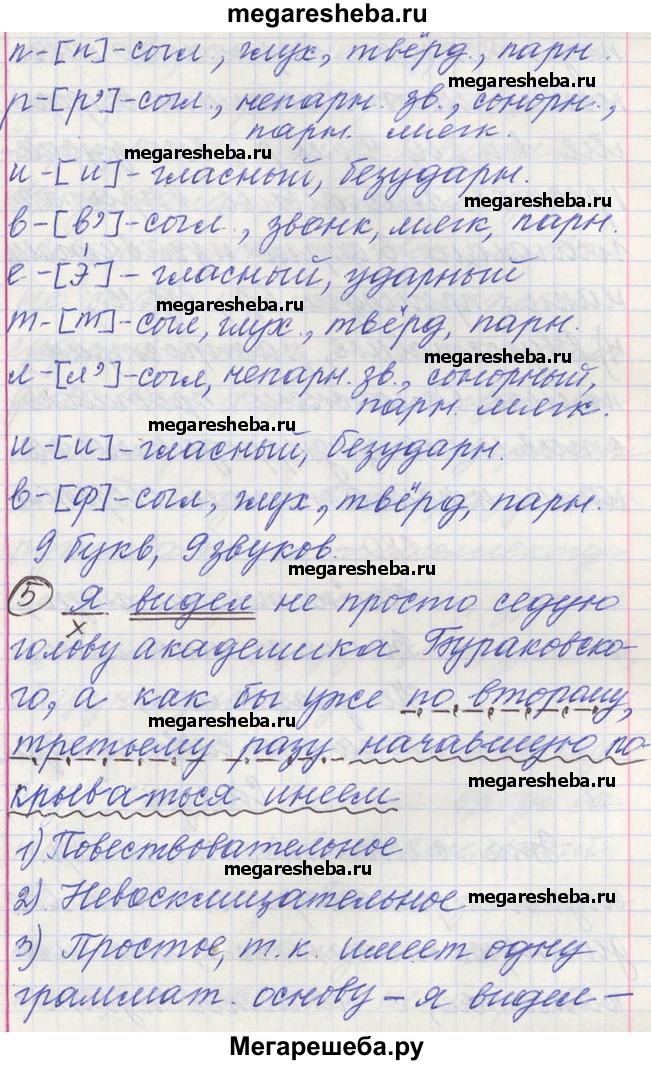 megaresheba.ru
п-[п]-согл., глух., твёрд., парн.
megaresheba.ru
р-[р']-согл., непарн. зв., сонорн.,
парн. мягк.
megaresheba.ru
и-[и]-гласный, безударн.
в-[в']-согл., звонк, мягк, парн.
megaresheba.ru
е-[э́]-гласный, ударный
megaresheba.ru
т-[т]-согл, глух., твёрд, парн.
megaresheba.ru
л-[л']-согл, непарн. зв., сонорный,
парн. мягк.
megaresheba.ru
и-[и]-гласный, безударн.
megaresheba.ru
в-[ф]-согл, глух., твёрд, парн.
9 букв, 9 звуков.
megaresheba.ru
5 Я видел не просто седую
х
голову академика Бураковско-
го, а как бы уже по второму,
megaresheba.ru
третьему разу начавшую по-
megaresheba.ru
крываться инеем
1) Повествовательное
megaresheba.ru
2) Невосклицательное
megaresheba.ru
3) Простое, т.к. имеет одну
граммат. основу - я видел -
Мегарешеба.ру